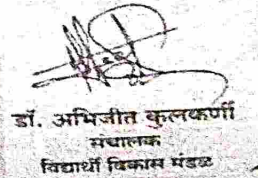 डॉ. अभिजीत कुलकर्णी
संचालक
विद्यार्थी विकास मंडळ